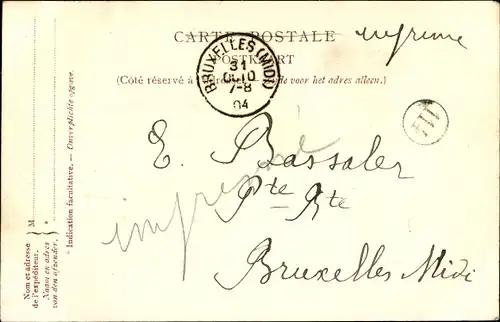 CARTE POSTALE
imprimé
POSTKAART
(Côté réservé à voor het adres alleen.)
BRUXELLES (MIDI)
31
7-8
04
E. Bassaler
imprimé
Pte Rte
Bruxelles Midi
Nom et adresse de l'expéditeur.
Naam en adres van den afzender.
M
* Indication facultative. — Onverplichte opgave.